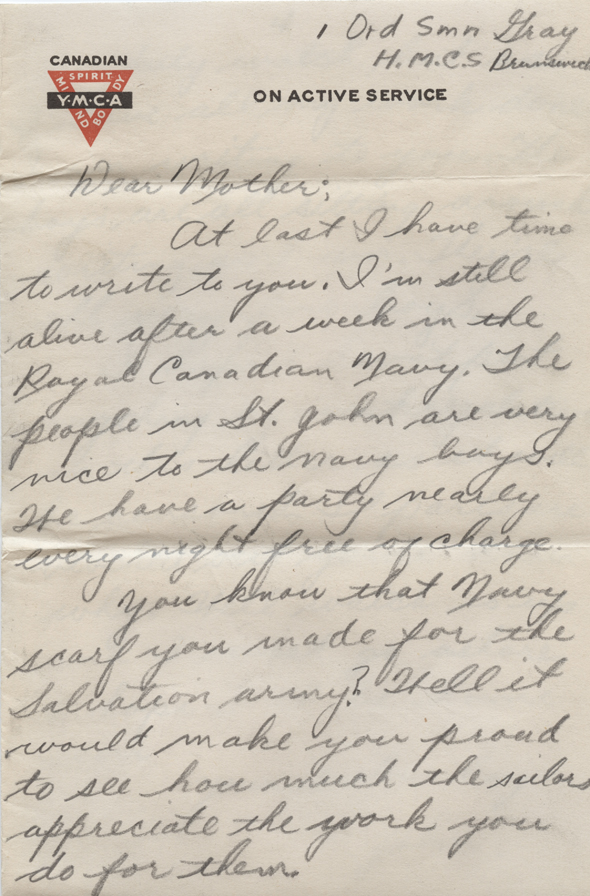 1 Ord Smn Gray
H.M.C.S Brunswick
CANADIAN
SPIRIT
MIND
BODY
Y·M·C·A
ON ACTIVE SERVICE
Dear Mother;
At last I have time
to write to you. I'm still
alive after a week in the
Royal Canadian Navy. The
people in St. John are very
nice to the navy boys.
We have a party nearly
every night free of charge.
You know that Navy
scarf you made for the
Salvation army? Well it
would make you proud
to see how much the sailors
appreciate the work you
do for them.